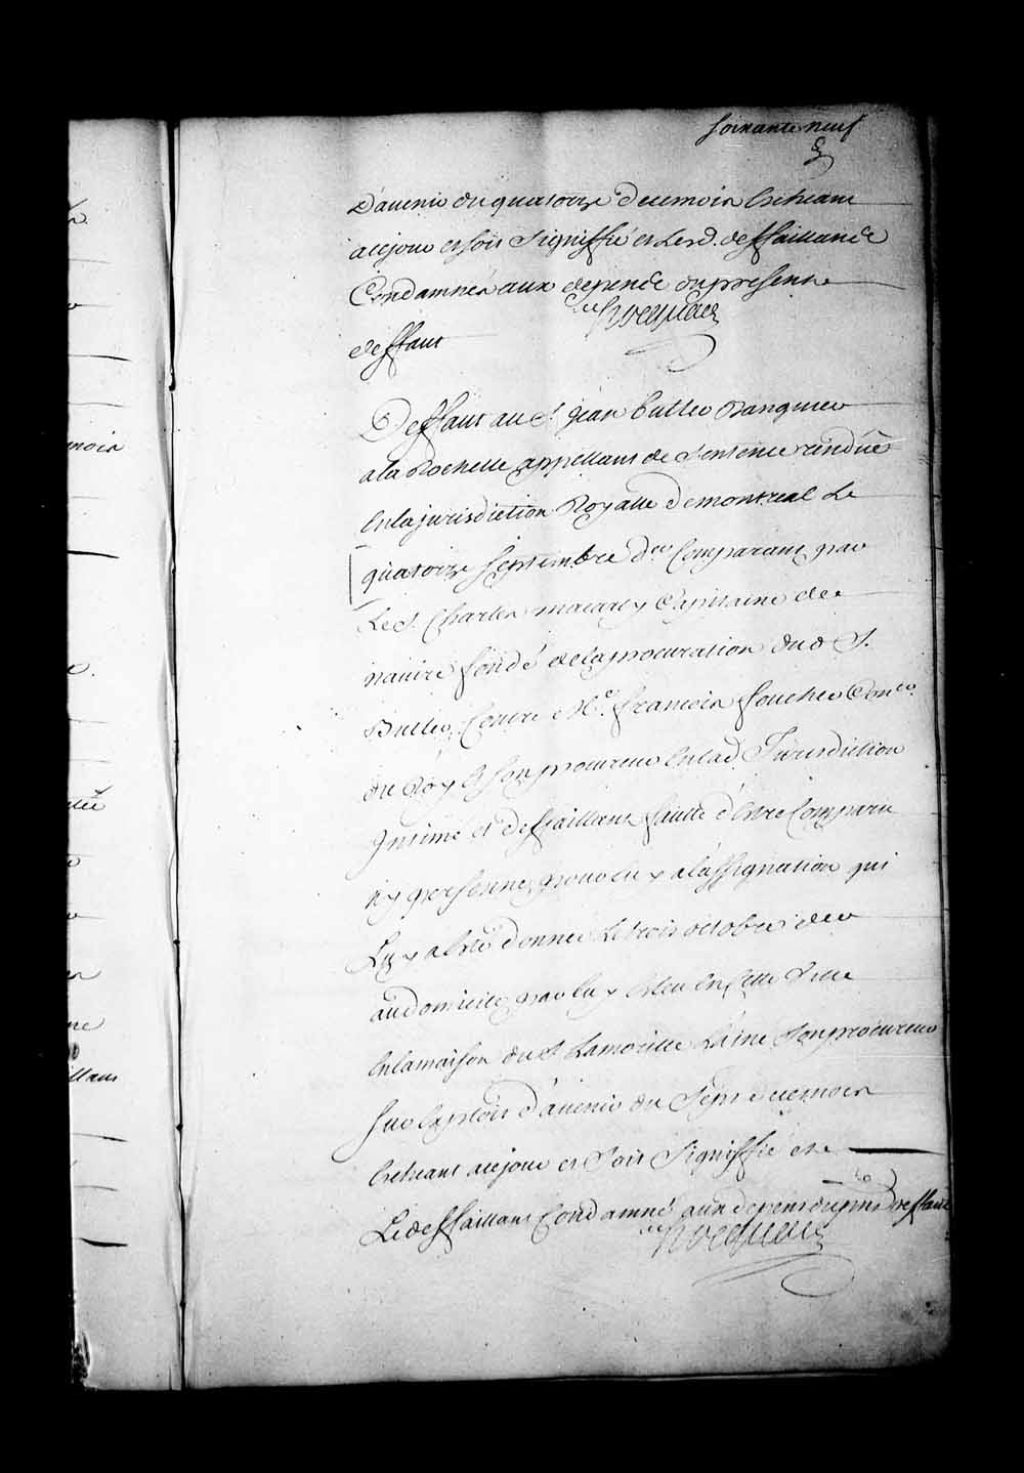 soixante neuf
D'avenir du quatorze de ce mois Echeant
a ce jour et soit Signiffié et Lesd. deffaillans
Condamnés aux depends du present
deffaut
Hocquart
Deffaut au Sr. jean butler Banquier
a la Rochelle appellant de Sentence rendüe
En la jurisdiction Royalle de montreal Le
quatorze septembre der. Comparant par
Le S. Charles macarty Capitaine de
navire fondé de la procuration dud S.
Butler, Contre Me. francois foucher Coner.
du Roy & son procureur En lad. Jurisdiction
Intimé et deffaillant faute d'Estre Comparu
ny personne pour luy a l'assignation qui
Luy a Esté donnée Le trois octobre der
au domicile par luy Esleu En cette Ville
En la maison du S. Lamorille L'ainé son procureur
sur Exploit d'avenir du Sept de ce mois
Echeant a ce jour et soit Signiffié et
Le deffaillant Condamné aux depens du pnt deffaut
Hocquart